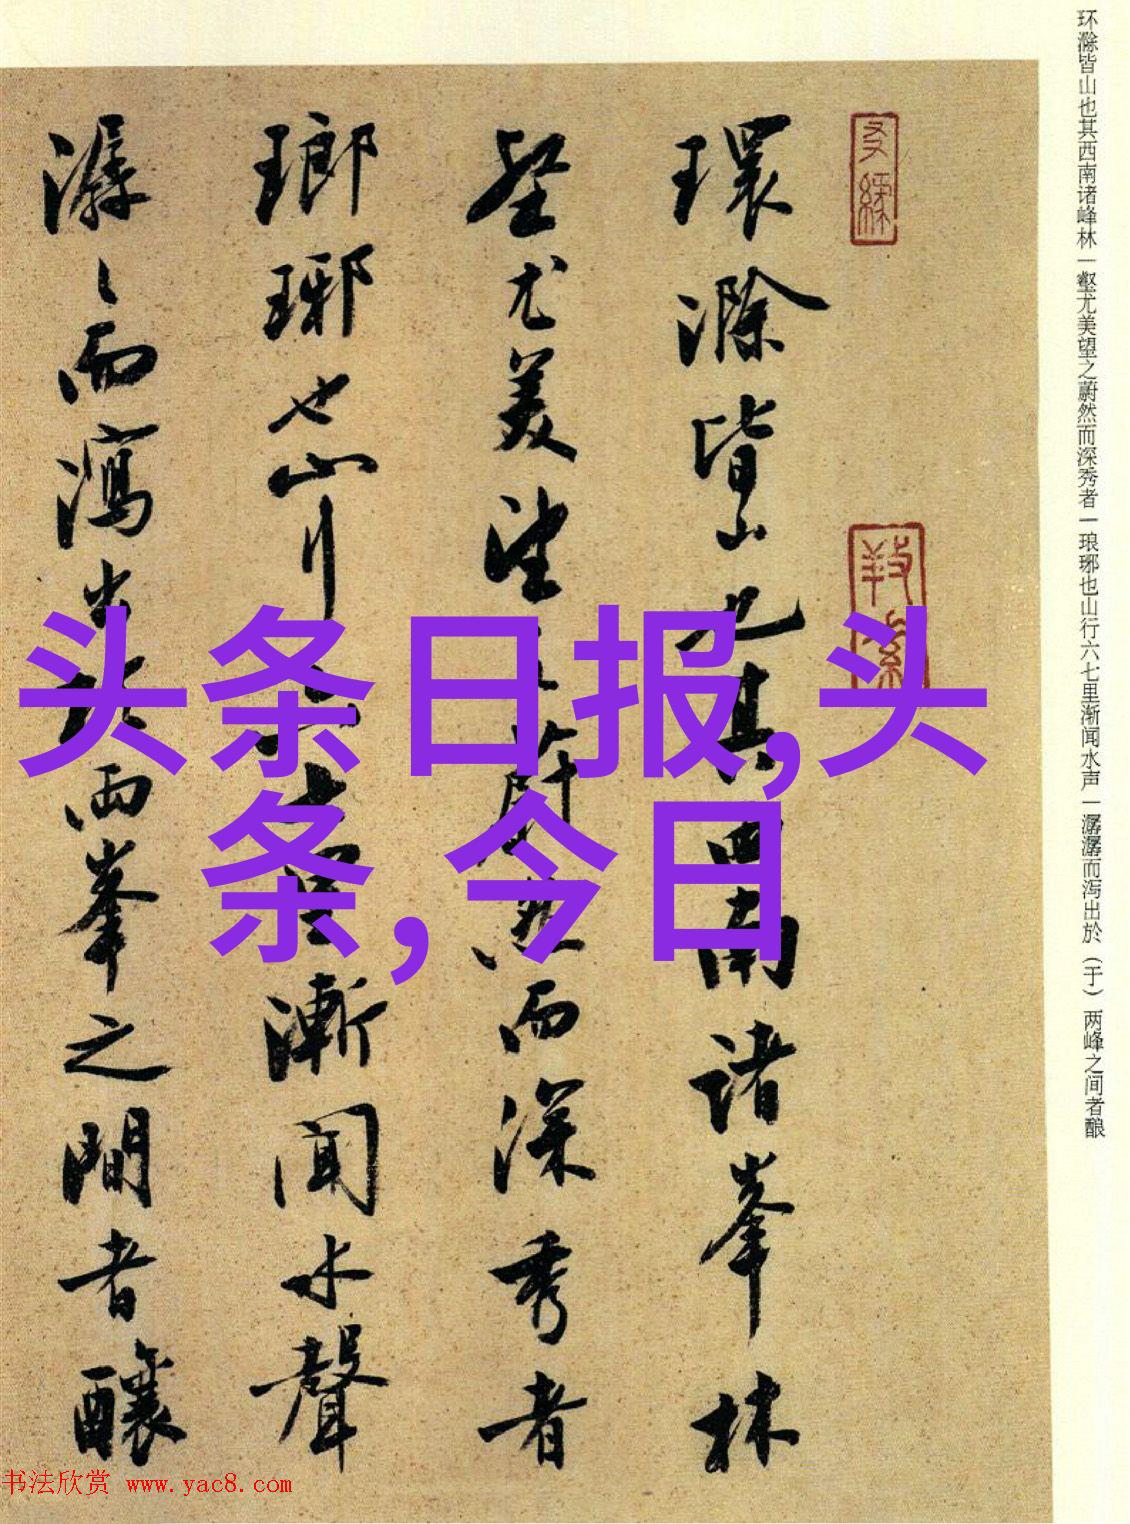 环滁皆山也其西南诸峰林|壑尤美望之蔚然而深秀者|琅琊也山行六七里渐闻水声|潺潺而泻出於（于）两峰之间者酿
環滁皆山也其西南諸峯林
壑尤美望之蔚然而深秀者
瑯琊也山行六七里漸聞水聲
潺〻而瀉出於兩峯之間者釀
头条日报,头
条,今日
书法欣赏 www.yac8.com